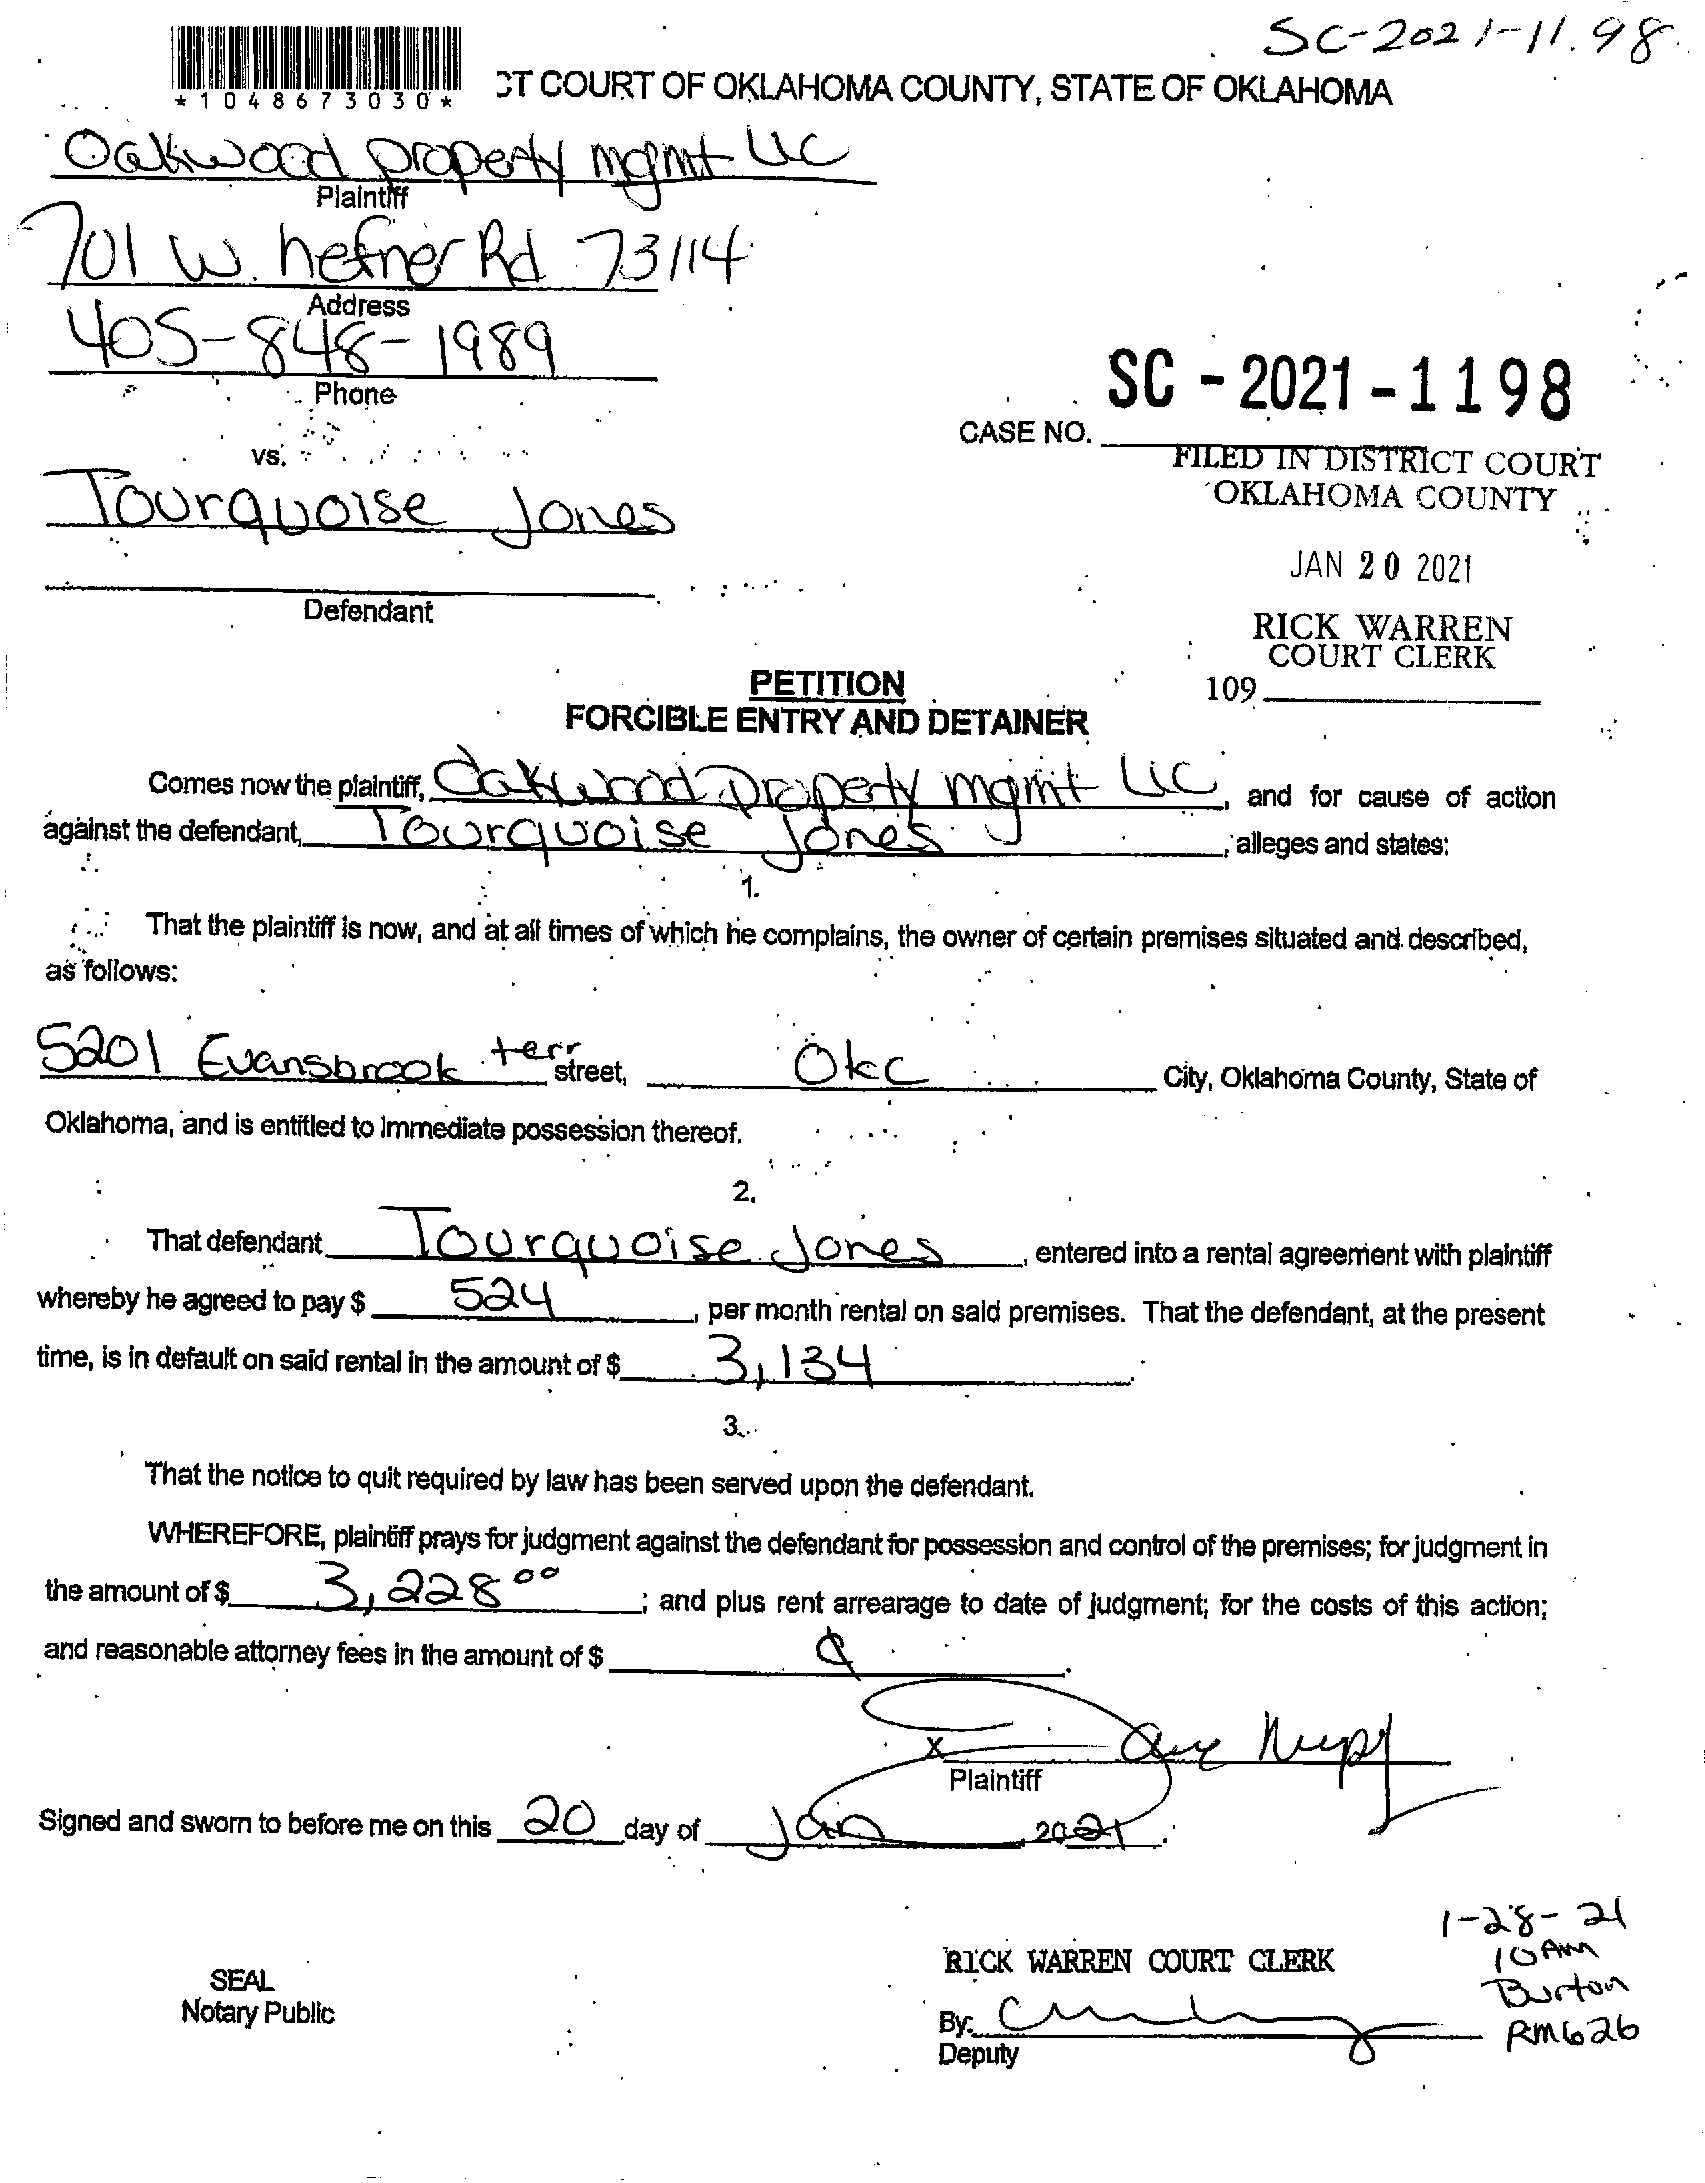 SC-2021-11.98
*1048673030*
CT COURT OF OKLAHOMA COUNTY, STATE OF OKLAHOMA
Oakwood property mgmt LLC
Plaintiff
701 W. hefner Rd 73114
Address
405-848-1989
Phone
SC-2021-1198
CASE NO.
vs.
FILED IN DISTRICT COURT
OKLAHOMA COUNTY
Tourquoise Jones
JAN 20 2021
Defendant
RICK WARREN
COURT CLERK
109
PETITION
FORCIBLE ENTRY AND DETAINER
Comes now the plaintiff, Oakwood Property mgmt LLC, and for cause of action
against the defendant, Tourquoise Jones, alleges and states:
1.
That the plaintiff is now, and at all times of which he complains, the owner of certain premises situated and described,
as follows:
5201 Evansbrook terr street, Okc City, Oklahoma County, State of
Oklahoma, and is entitled to immediate possession thereof.
2.
That defendant Tourquoise Jones, entered into a rental agreement with plaintiff
whereby he agreed to pay $ 524, per month rental on said premises. That the defendant, at the present
time, is in default on said rental in the amount of $ 3,134.
3.
That the notice to quit required by law has been served upon the defendant.
WHEREFORE, plaintiff prays for judgment against the defendant for possession and control of the premises; for judgment in
the amount of $ 3,228 00; and plus rent arrearage to date of judgment; for the costs of this action;
and reasonable attorney fees in the amount of $
X
Plaintiff
Signed and sworn to before me on this 20 day of Jan, 2021.
1-28-21
10AM
Burton
RM626
RICK WARREN COURT CLERK
SEAL
Notary Public
By:
Deputy